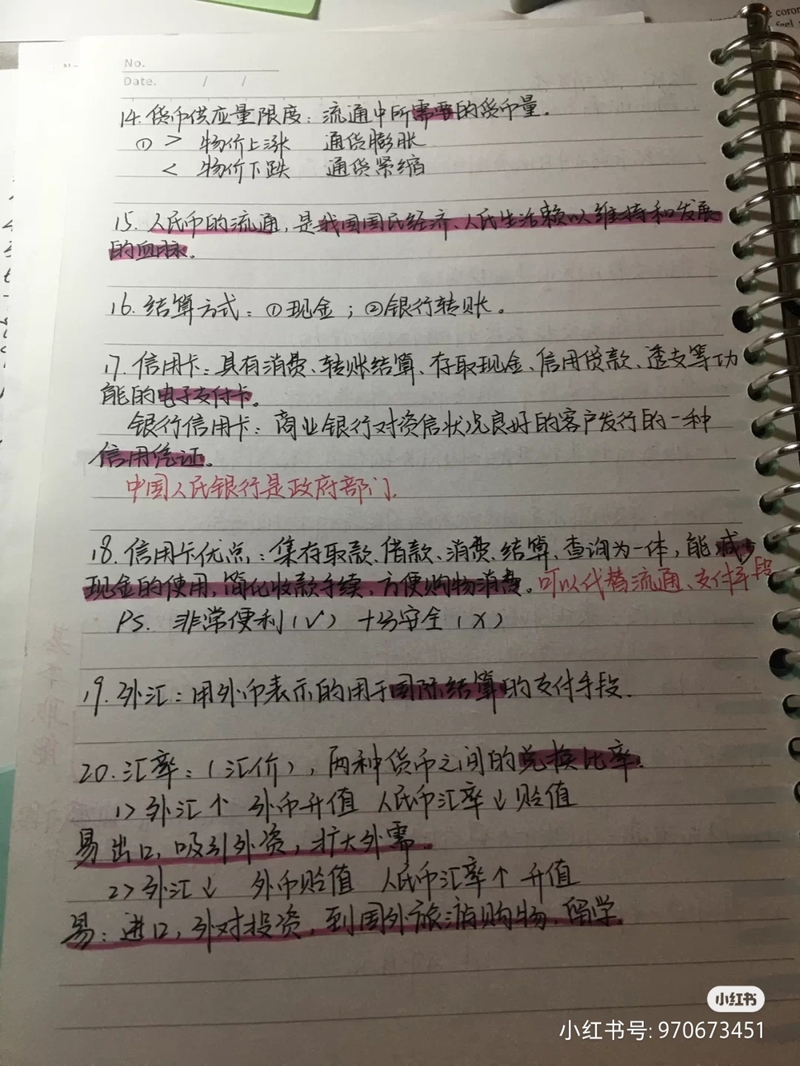 No.
Date. / /
14.货币供应量限度：流通中所需要的货币量。
① > 物价上涨 通货膨胀
< 物价下跌 通货紧缩
15.人民币的流通，是我国国民经济、人民生活赖以维持和发展
的血脉。
16.结算方式：①现金；②银行转账。
17.信用卡：具有消费、转账结算、存取现金、信用贷款、透支等功
能的电子支付卡。
银行信用卡：商业银行对资信状况良好的客户发行的一种
信用凭证。
中国人民银行是政府部门.
18.信用卡优点：集存取款、借款、消费、结算、查询为一体，能减少
现金的使用，简化收款手续，方便购物消费。可以代替流通、支付手段
PS. 非常便利（√） 十分安全（×）
19.外汇：用外币表示的用于国际结算的支付手段.
20.汇率：（汇价），两种货币之间的兑换比率.
1>外汇↑ 外币升值 人民币汇率↓贬值
易出口，吸引外资，扩大外需。
2>外汇↓ 外币贬值 人民币汇率↑升值
易：进口，外对投资，到国外旅游购物、留学.
小红书
小红书号: 970673451